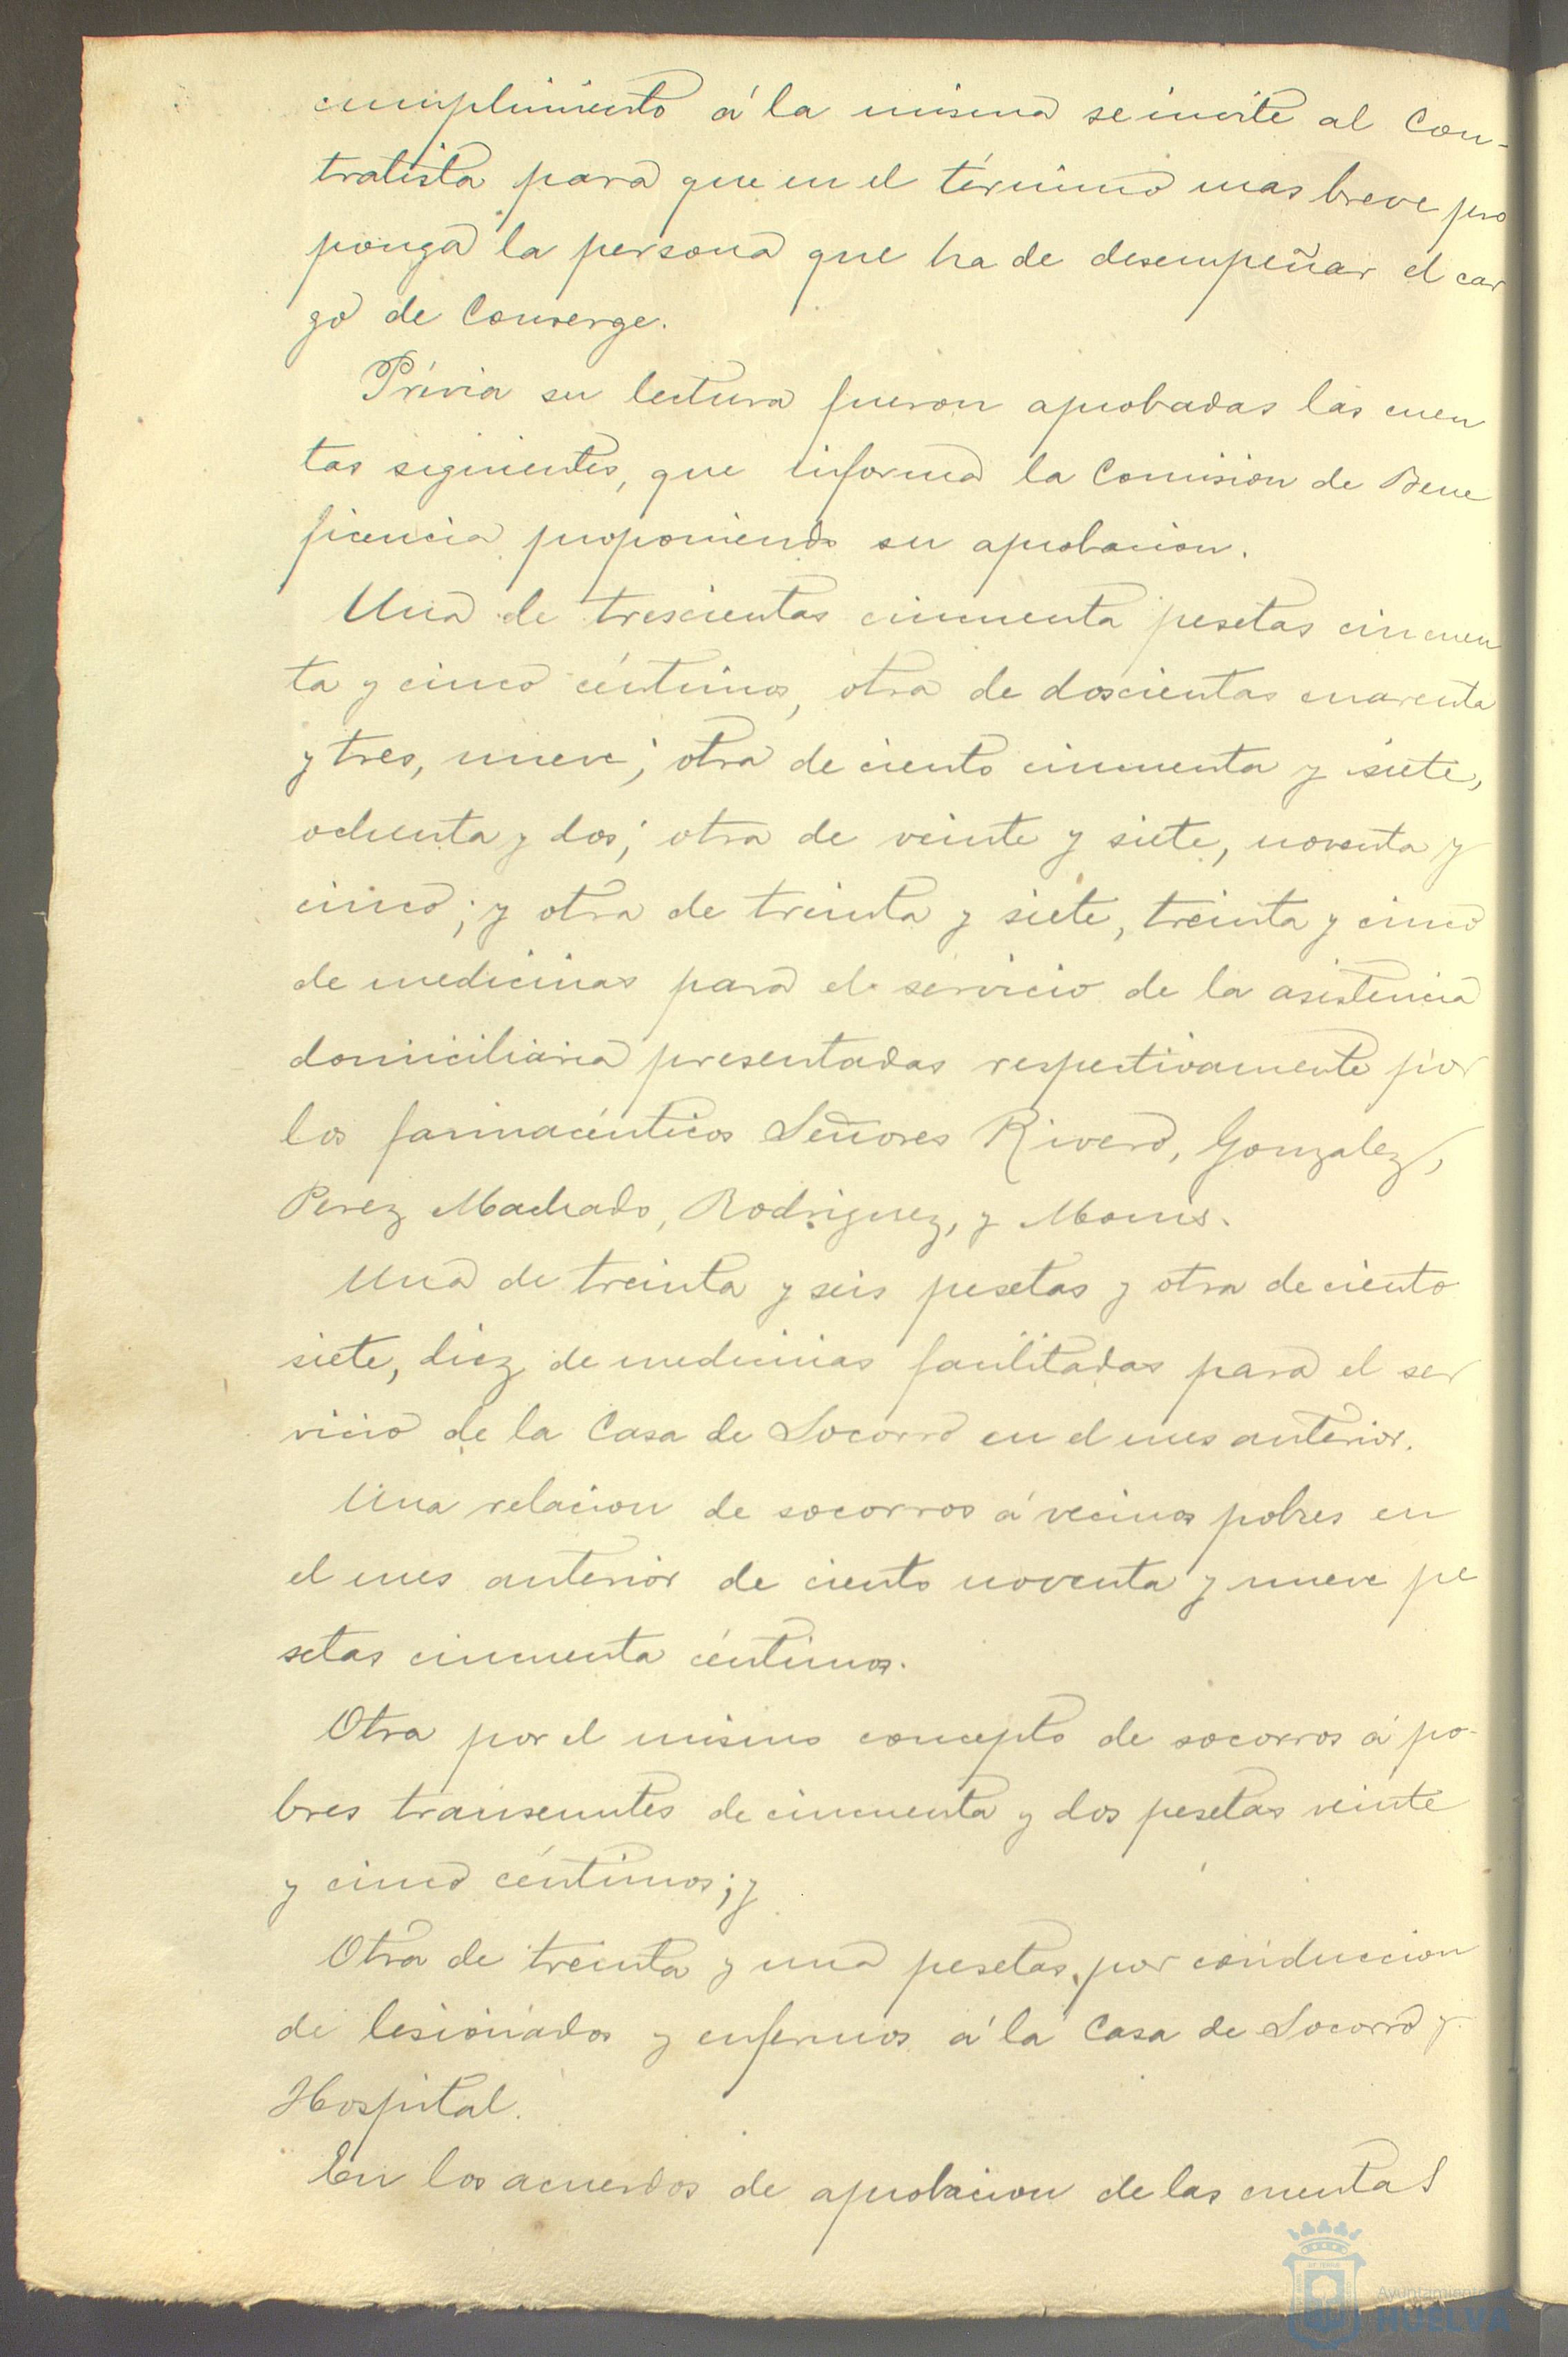 cumplimiento á la misma se invite al Con-
tratista para que en el término mas breve pro
ponga la persona que ha de desempeñar el car
go de Conserge.
Prévia su lectura fueron aprobadas las cuen
tas siguientes, que informa la Comision de Bene
ficencia proponiendo su aprobacion.
Una de trescientas cincuenta pesetas cincuen
ta y cinco céntimos, otra de doscientas cuarenta
y tres, nueve; otra de ciento cincuenta y siete,
ochenta y dos; otra de veinte y siete, noventa y
cinco; y otra de treinta y siete, treinta y cinco
de medicinas para el servicio de la asistencia
domiciliaria presentadas respectivamente por
los farmacéuticos Señores Rivero, Gonzalez,
Perez Machado, Rodriguez, y Monis.
Una de treinta y seis pesetas y otra de ciento
siete, diez de medicinas facilitadas para el ser
vicio de la Casa de Socorro en el mes anterior.
Una relacion de socorros á vecinos pobres en
el mes anterior de ciento noventa y nueve pe
setas cincuenta céntimos.
Otra por el mismo concepto de socorros á po-
bres transeuntes de cincuenta y dos pesetas veinte
y cinco céntimos; y
Otra de treinta y una pesetas, por conduccion
de lesionados y enfermos á la Casa de Socorro y
Hospital.
En los acuerdos de aprobacion de las cuentas
Ayuntamiento
HUELVA